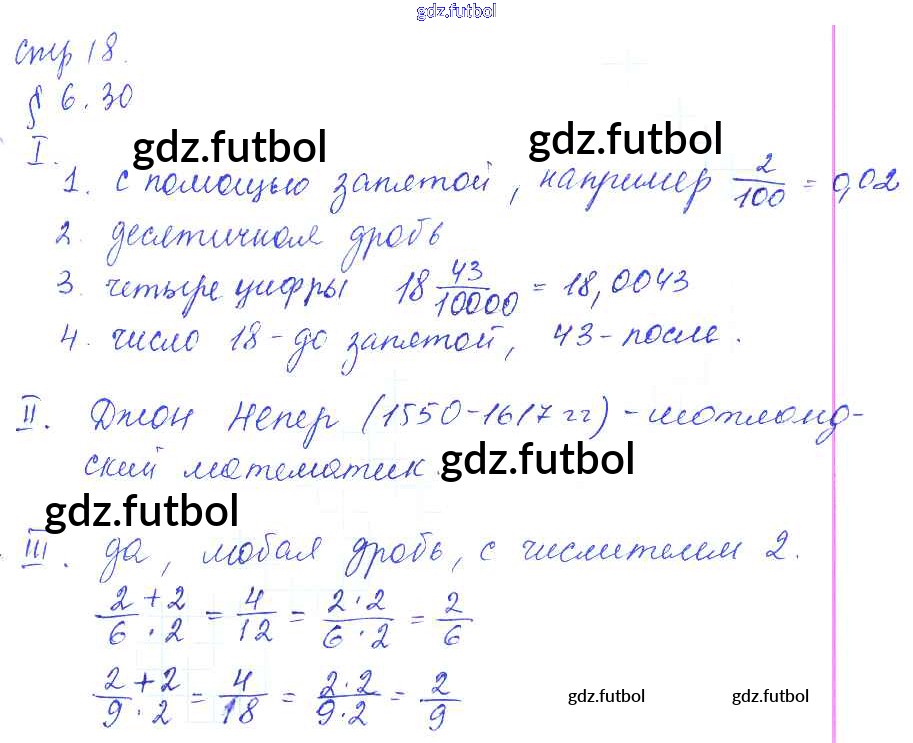 gdz.futbol
Стр 18.
§ 6.30
gdz.futbol gdz.futbol
I.
1. с помощью запятой, например 2/100 = 0,02
2. десятичная дробь
3. четыре цифры 18 43/10000 = 18,0043
4. число 18 - до запятой, 43 - после.
II. Джон Непер (1550-1617 гг) - шотланд-
ский математик.
gdz.futbol
gdz.futbol
III. да, любая дробь, с числителем 2.
2+2/6·2 = 4/12 = 2·2/6·2 = 2/6
2+2/9·2 = 4/18 = 2·2/9·2 = 2/9
gdz.futbol gdz.futbol